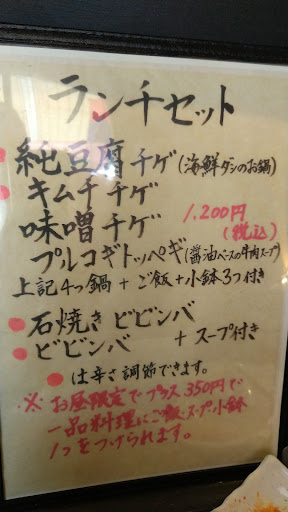 ランチセット
● 純豆腐チゲ(海鮮ダシのお鍋)
● キムチチゲ
味噌チゲ 1,200円(税込)
プルコギトッペギ(醤油ベースの牛肉スープ)
上記4つ鍋+ご飯+小鉢3つ付き
● 石焼きビビンバ
● ビビンバ +スープ付き
● は辛さ調節できます。
※ お昼限定でプラス350円で
一品料理にご飯・スープ・小鉢
1つをつけられます。